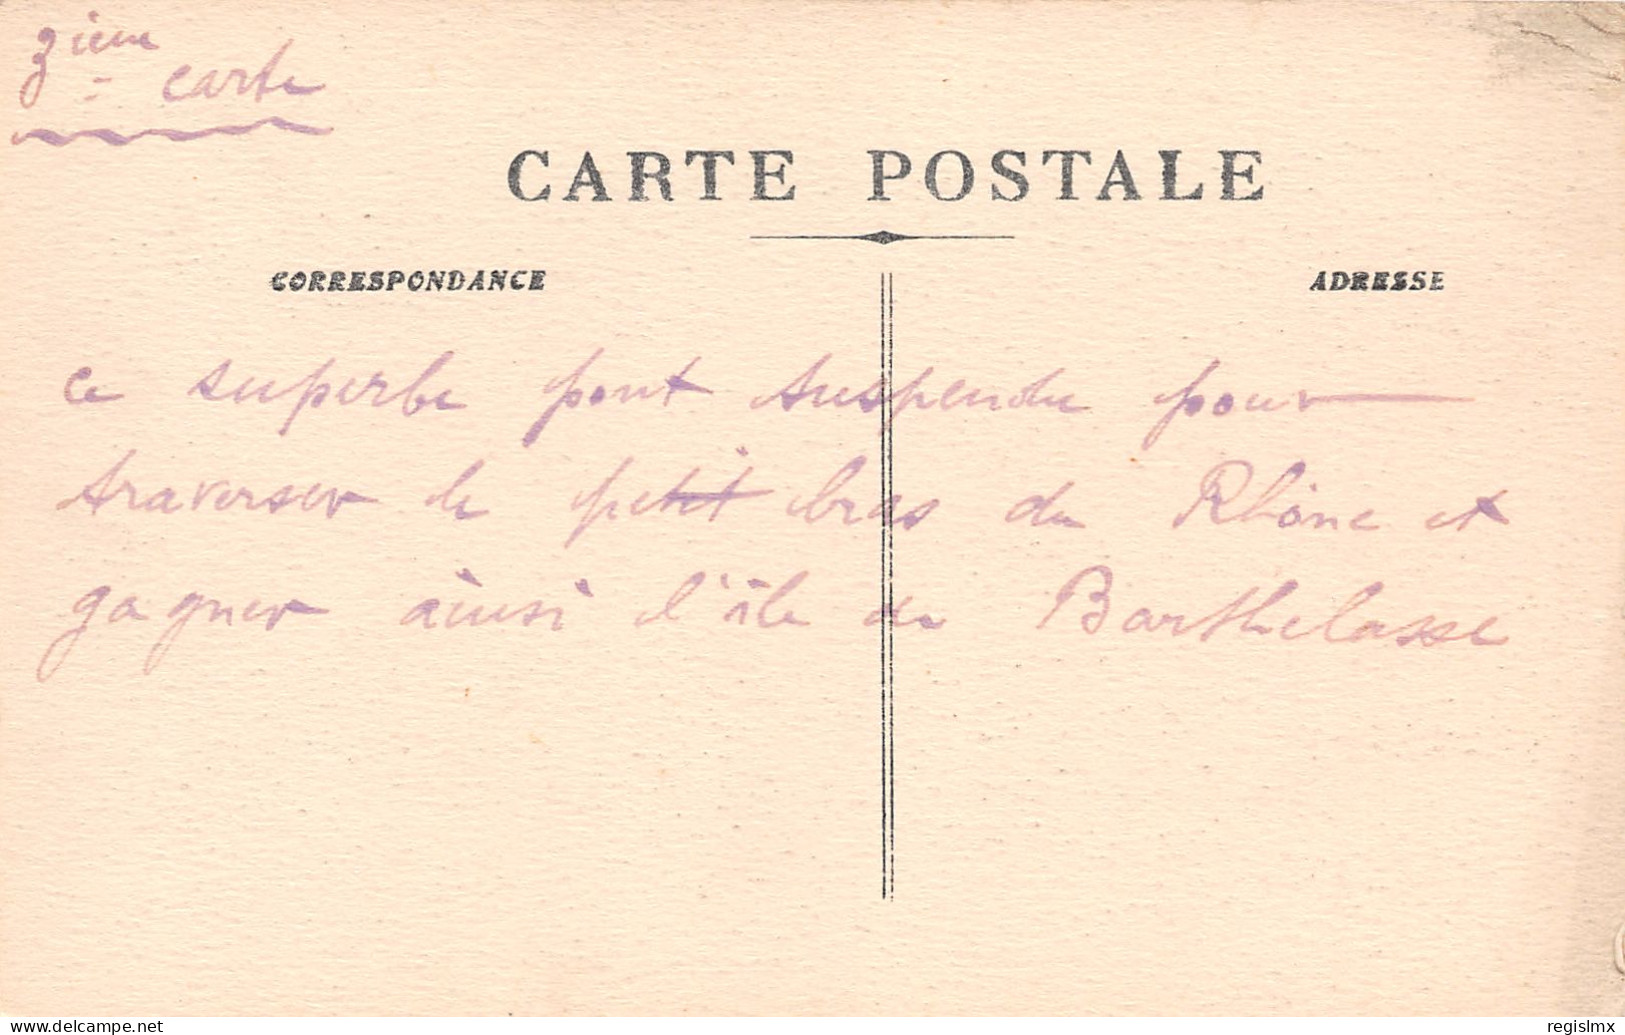 3ième
carte
CARTE POSTALE
CORRESPONDANCE
ADRESSE
ce superbe pont suspendu pour
traverser le petit bras du Rhône et
gagner ainsi l'île de Barthelasse
www.delcampe.net
regislmx